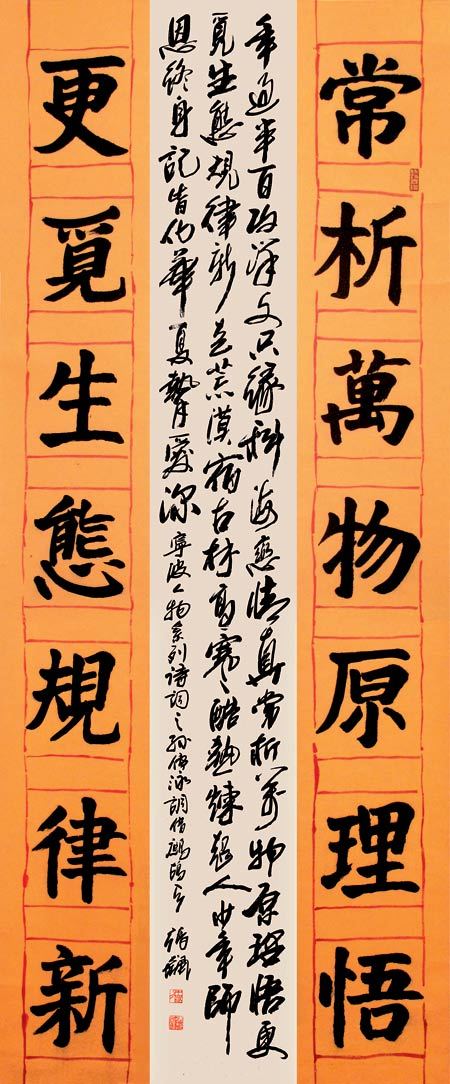 常析萬物原理悟
年過半百攻洋文只緣科海戀情真常析萬物原理悟更
覓生態規律新走荒漠宿古村高寒酷熱煉超人幼年師
恩終身記皆華夏摯愛深 寧波人物系列詩詞之孫儒泳調借鷓鴣天
更覓生態規律新